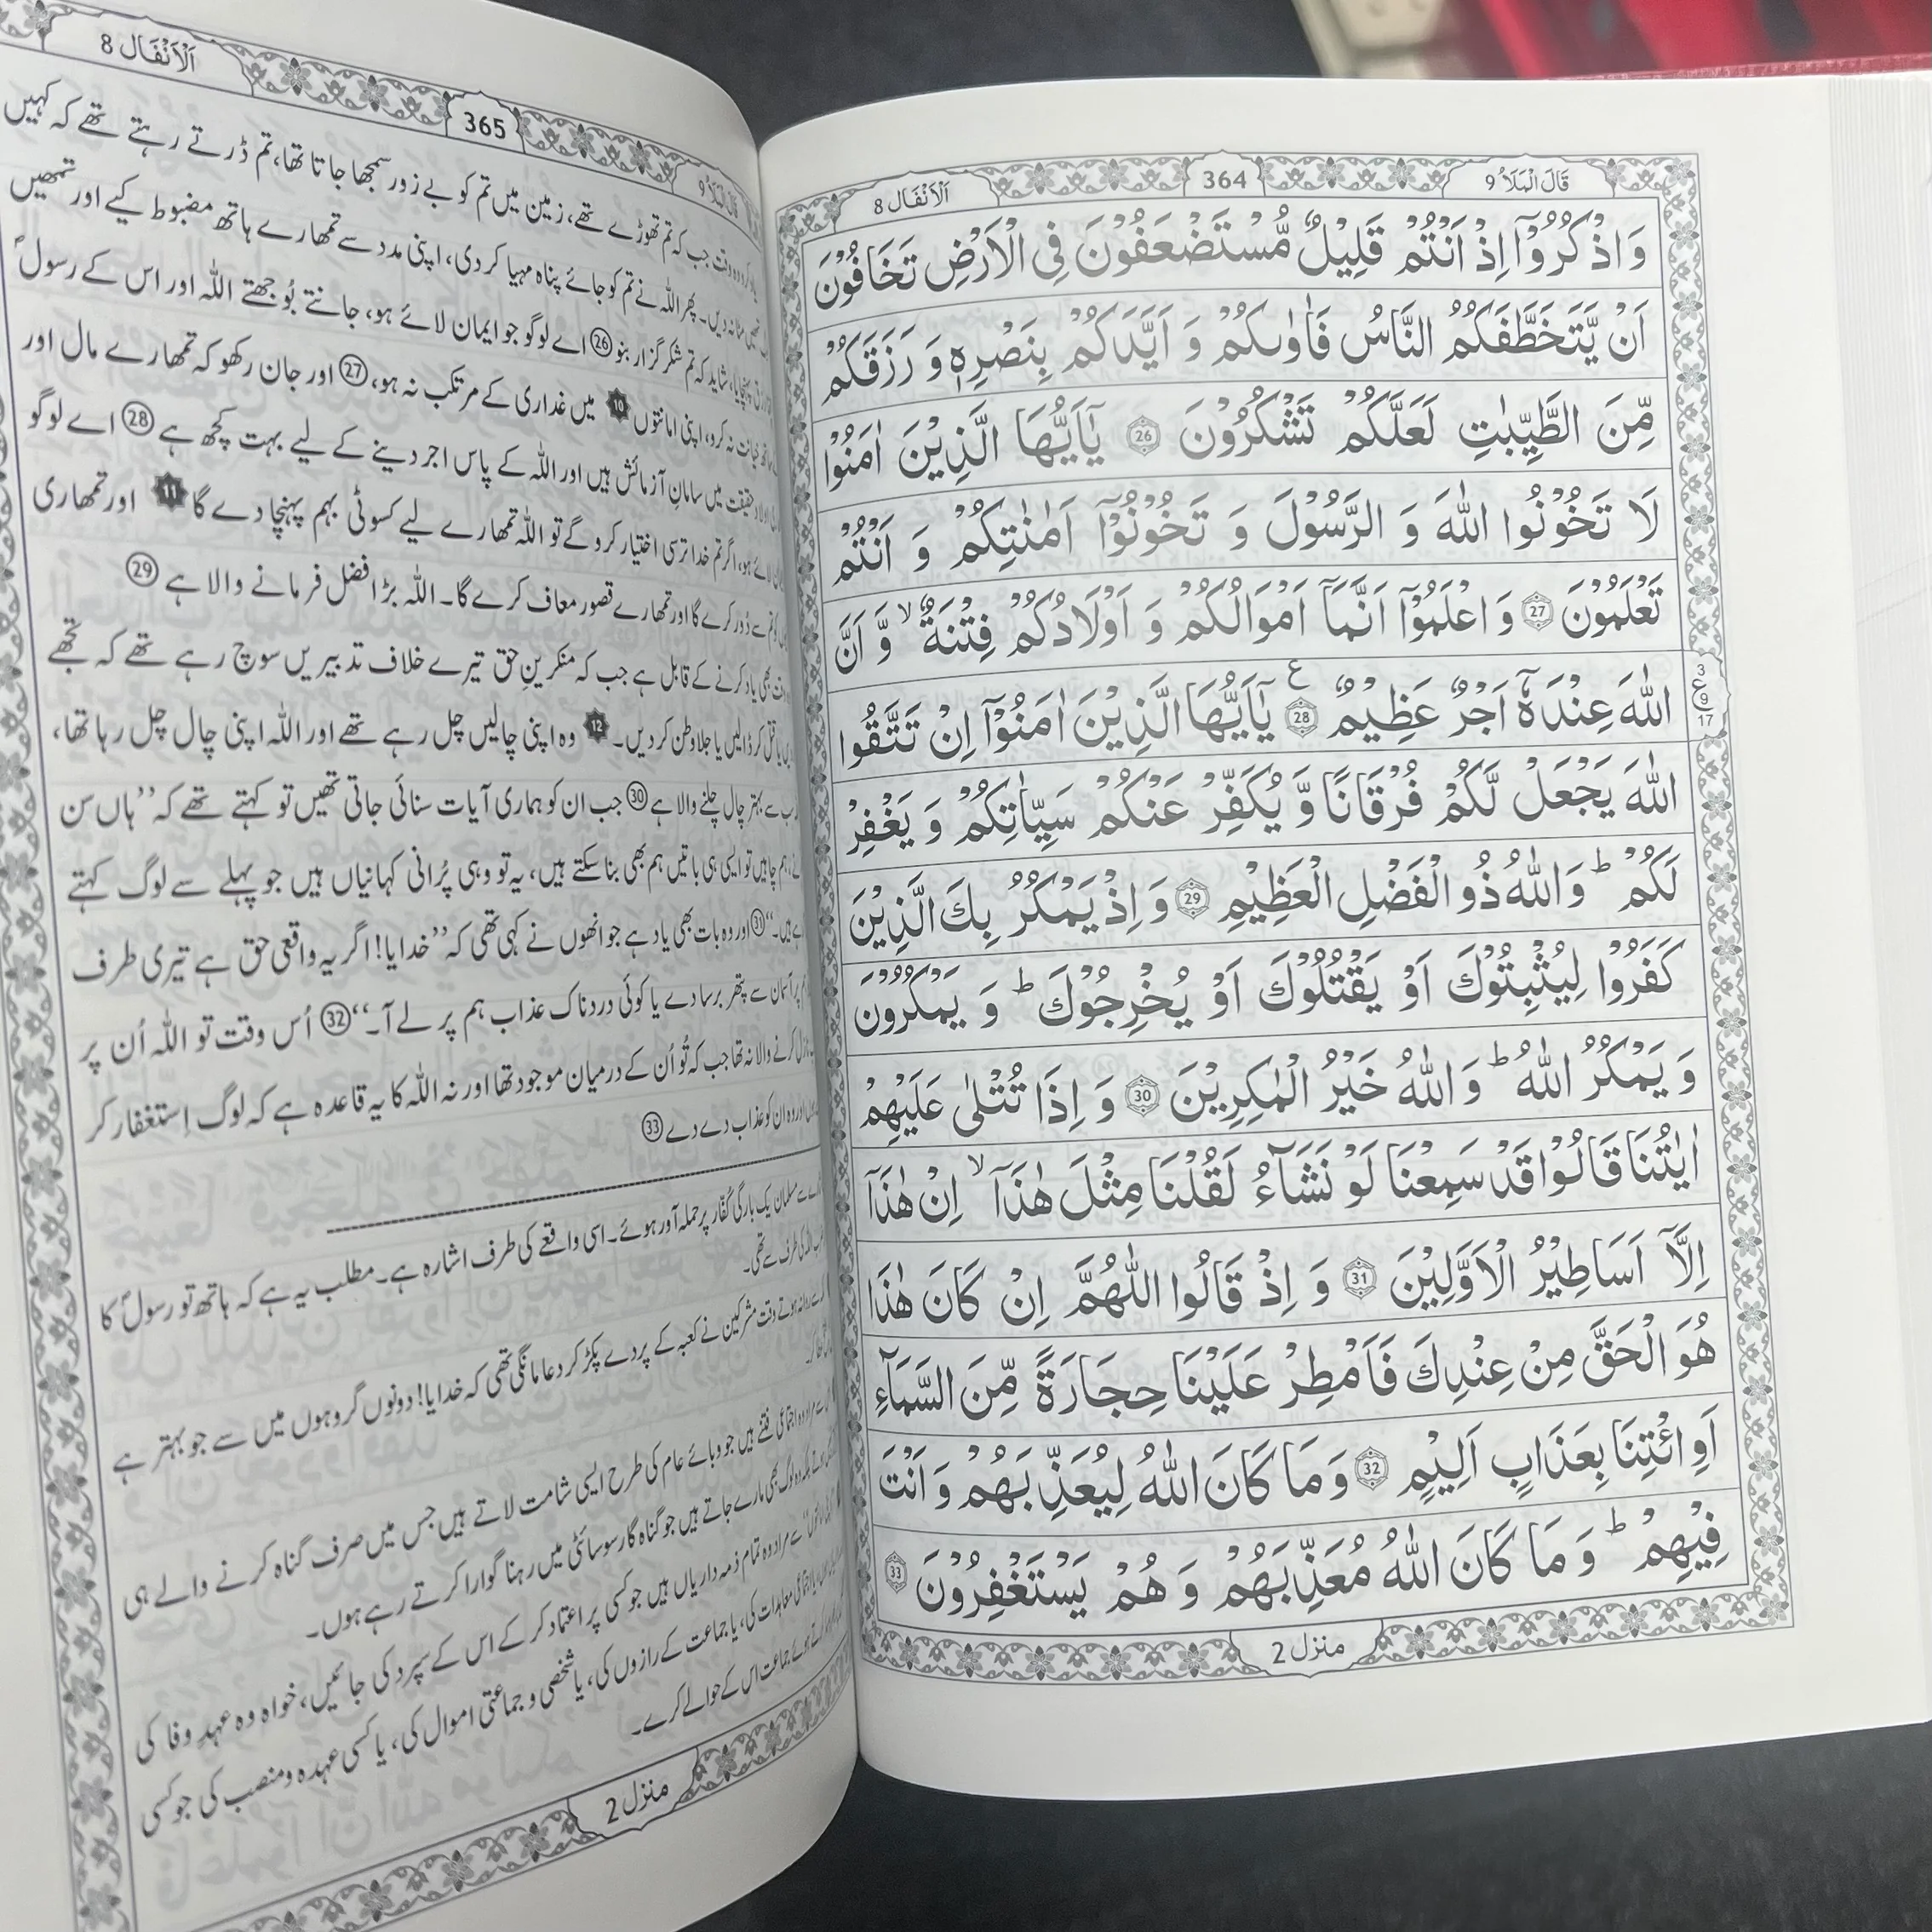 قَالَ الْمَلَاُ 9
364
اَلْاَنْفَال 8
وَاذْكُرُوْۤا اِذْ اَنْتُمْ قَلِيْلٌ مُّسْتَضْعَفُوْنَ فِی الْاَرْضِ تَخَافُوْنَ
اَنْ يَّتَخَطَّفَكُمُ النَّاسُ فَاٰوٰىكُمْ وَ اَيَّدَكُمْ بِنَصْرِهٖ وَ رَزَقَكُمْ
مِّنَ الطَّيِّبٰتِ لَعَلَّكُمْ تَشْكُرُوْنَ 26 يٰۤاَيُّهَا الَّذِيْنَ اٰمَنُوْا
لَا تَخُوْنُوا اللّٰهَ وَ الرَّسُوْلَ وَ تَخُوْنُوْۤا اَمٰنٰتِكُمْ وَ اَنْتُمْ
تَعْلَمُوْنَ 27 وَ اعْلَمُوْۤا اَنَّمَاۤ اَمْوَالُكُمْ وَ اَوْلَادُكُمْ فِتْنَةٌ ۙ وَّ اَنَّ
اللّٰهَ عِنْدَهٗۤ اَجْرٌ عَظِيْمٌ 28 ع يٰۤاَيُّهَا الَّذِيْنَ اٰمَنُوْۤا اِنْ تَتَّقُوا
3
ع 9
17
اللّٰهَ يَجْعَلْ لَّكُمْ فُرْقَانًا وَّ يُكَفِّرْ عَنْكُمْ سَيِّاٰتِكُمْ وَ يَغْفِرْ
لَكُمْ ؕ وَ اللّٰهُ ذُو الْفَضْلِ الْعَظِيْمِ 29 وَ اِذْ يَمْكُرُ بِكَ الَّذِيْنَ
كَفَرُوْا لِيُثْبِتُوْكَ اَوْ يَقْتُلُوْكَ اَوْ يُخْرِجُوْكَ ؕ وَ يَمْكُرُوْنَ
وَ يَمْكُرُ اللّٰهُ ؕ وَ اللّٰهُ خَيْرُ الْمٰكِرِيْنَ 30 وَ اِذَا تُتْلٰى عَلَيْهِمْ
اٰيٰتُنَا قَالُوْا قَدْ سَمِعْنَا لَوْ نَشَآءُ لَقُلْنَا مِثْلَ هٰذَاۤ ۙ اِنْ هٰذَاۤ
اِلَّاۤ اَسَاطِيْرُ الْاَوَّلِيْنَ 31 وَ اِذْ قَالُوا اللّٰهُمَّ اِنْ كَانَ هٰذَا
هُوَ الْحَقَّ مِنْ عِنْدِكَ فَاَمْطِرْ عَلَيْنَا حِجَارَةً مِّنَ السَّمَآءِ
اَوِ ائْتِنَا بِعَذَابٍ اَلِيْمٍ 32 وَ مَا كَانَ اللّٰهُ لِيُعَذِّبَهُمْ وَ اَنْتَ
فِيْهِمْ ؕ وَ مَا كَانَ اللّٰهُ مُعَذِّبَهُمْ وَ هُمْ يَسْتَغْفِرُوْنَ 33
منزل 2
365
اَلْاَنْفَال 8
وقت جب کہ تم تھوڑے تھے، زمین میں تم کو بے زور سمجھا جاتا تھا، تم ڈرتے رہتے تھے کہ کہیں
دیں۔ پھر اللہ نے تم کو جائے پناہ مہیا کر دی، اپنی مدد سے تمھارے ہاتھ مضبوط کیے اور تمھیں
شاید کہ تم شکر گزار بنو 26 اے لوگو جو ایمان لائے ہو، جانتے بُوجھتے اللہ اور اس کے رسولؐ
خیانت نہ کرو، اپنی امانتوں 10 میں غداری کے مرتکب نہ ہو، 27 اور جان رکھو کہ تمھارے مال اور
حقیقت میں سامانِ آزمائش ہیں اور اللہ کے پاس اجر دینے کے لیے بہت کچھ ہے 28 اے لوگو
لائے ہو، اگر تم خدا ترسی اختیار کرو گے تو اللہ تمھارے لیے کسوٹی بہم پہنچا دے گا 11 اور تمھاری
دُور کرے گا اور تمھارے قصور معاف کرے گا۔ اللہ بڑا فضل فرمانے والا ہے 29
بھی یاد کرنے کے قابل ہے جب کہ منکرینِ حق تیرے خلاف تدبیریں سوچ رہے تھے کہ تجھے
یا قتل کر ڈالیں یا جلا وطن کر دیں۔ 12 وہ اپنی چالیں چل رہے تھے اور اللہ اپنی چال چل رہا تھا،
سے بہتر چال چلنے والا ہے 30 جب ان کو ہماری آیات سنائی جاتی تھیں تو کہتے تھے کہ ’’ہاں سن
ہم چاہیں تو ایسی ہی باتیں ہم بھی بنا سکتے ہیں، یہ تو وہی پُرانی کہانیاں ہیں جو پہلے سے لوگ کہتے
ہیں۔‘‘ 31 اور وہ بات بھی یاد ہے جو انھوں نے کہی تھی کہ ’’خدایا! اگر یہ واقعی حق ہے تیری طرف
پر آسمان سے پتھر برسا دے یا کوئی دردناک عذاب ہم پر لے آ۔‘‘ 32 اُس وقت تو اللہ اُن پر
کرنے والا نہ تھا جب کہ تُو اُن کے درمیان موجود تھا اور نہ اللہ کا یہ قاعدہ ہے کہ لوگ اِستغفار کر
اور وہ ان کو عذاب دے دے 33
سے مسلمان یک بارگی کُفّار پر حملہ آور ہوئے۔ اسی واقعے کی طرف اشارہ ہے۔ مطلب یہ ہے کہ ہاتھ تو رسولؐ کا
کی طرف سے تھی۔
ہوتے وقت مشرکین نے کعبہ کے پردے پکڑ کر دعا مانگی تھی کہ خدایا! دونوں گروہوں میں سے جو بہتر ہے
اجتماعی فتنے ہیں جو وبائے عام کی طرح ایسی شامت لاتے ہیں جس میں صرف گناہ کرنے والے ہی
بلکہ وہ لوگ بھی مارے جاتے ہیں جو گناہ گار سوسائٹی میں رہنا گوارا کرتے رہے ہوں۔
سے مراد وہ تمام ذمہ داریاں ہیں جو کسی پر اعتماد کر کے اس کے سپرد کی جائیں، خواہ وہ عہدِ وفا کی
معاہدات کی، یا جماعت کے رازوں کی، یا شخصی و جماعتی اموال کی، یا کسی عہدہ و منصب کی جو کسی
جماعت اس کے حوالے کرے۔
منزل 2